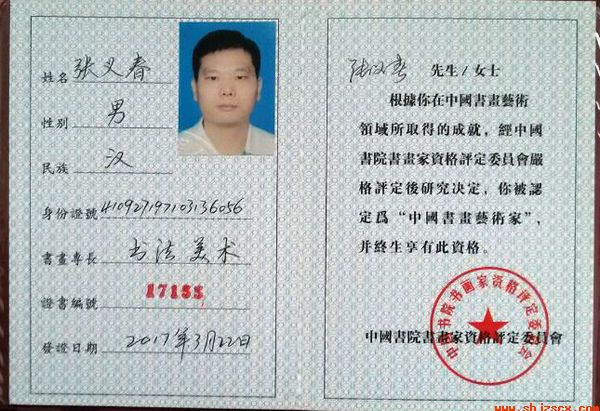 姓名 张义春
性别 男
民族 汉
身份證號 410927197103136056
書畫專長 书法 美术
證書編號 17155
發證日期 2017年3月22日
先生/女士
根據你在中國書畫藝術
領域所取得的成就，經中國
書院書畫家資格評定委員會嚴
格評定後研究决定，你被認
定爲“中國書畫藝術家”，
并終生享有此資格。
中国书院书画家资格评定委员会
中國書院書畫家資格評定委員會
www.shjzscx.com